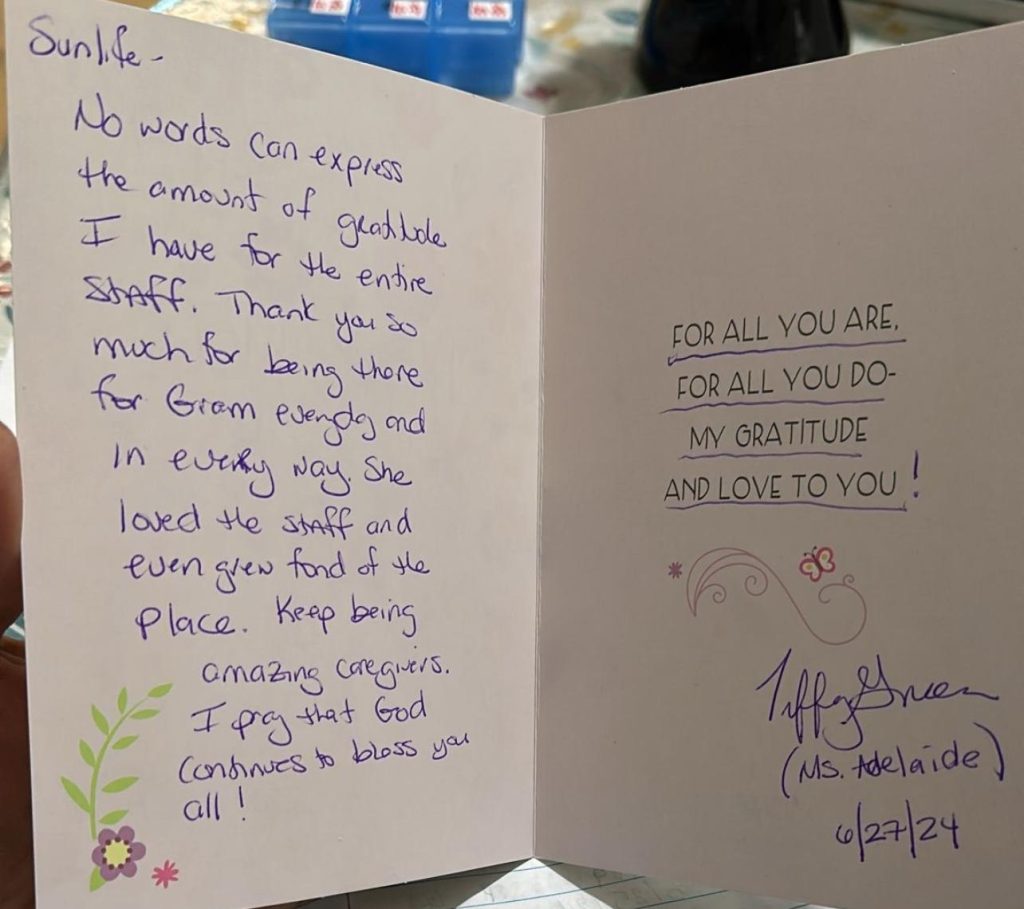 Sunlife -
No words can express
the amount of gratitude
I have for the entire
staff. Thank you so
much for being there
for Gram everyday and
in every way. She
loved the staff and
even grew fond of the
place. Keep being
amazing caregivers.
I pray that God
continues to bless you
all!
FOR ALL YOU ARE,
FOR ALL YOU DO-
MY GRATITUDE
AND LOVE TO YOU!
Tiffany Green
(Ms. Adelaide)
6/27/24